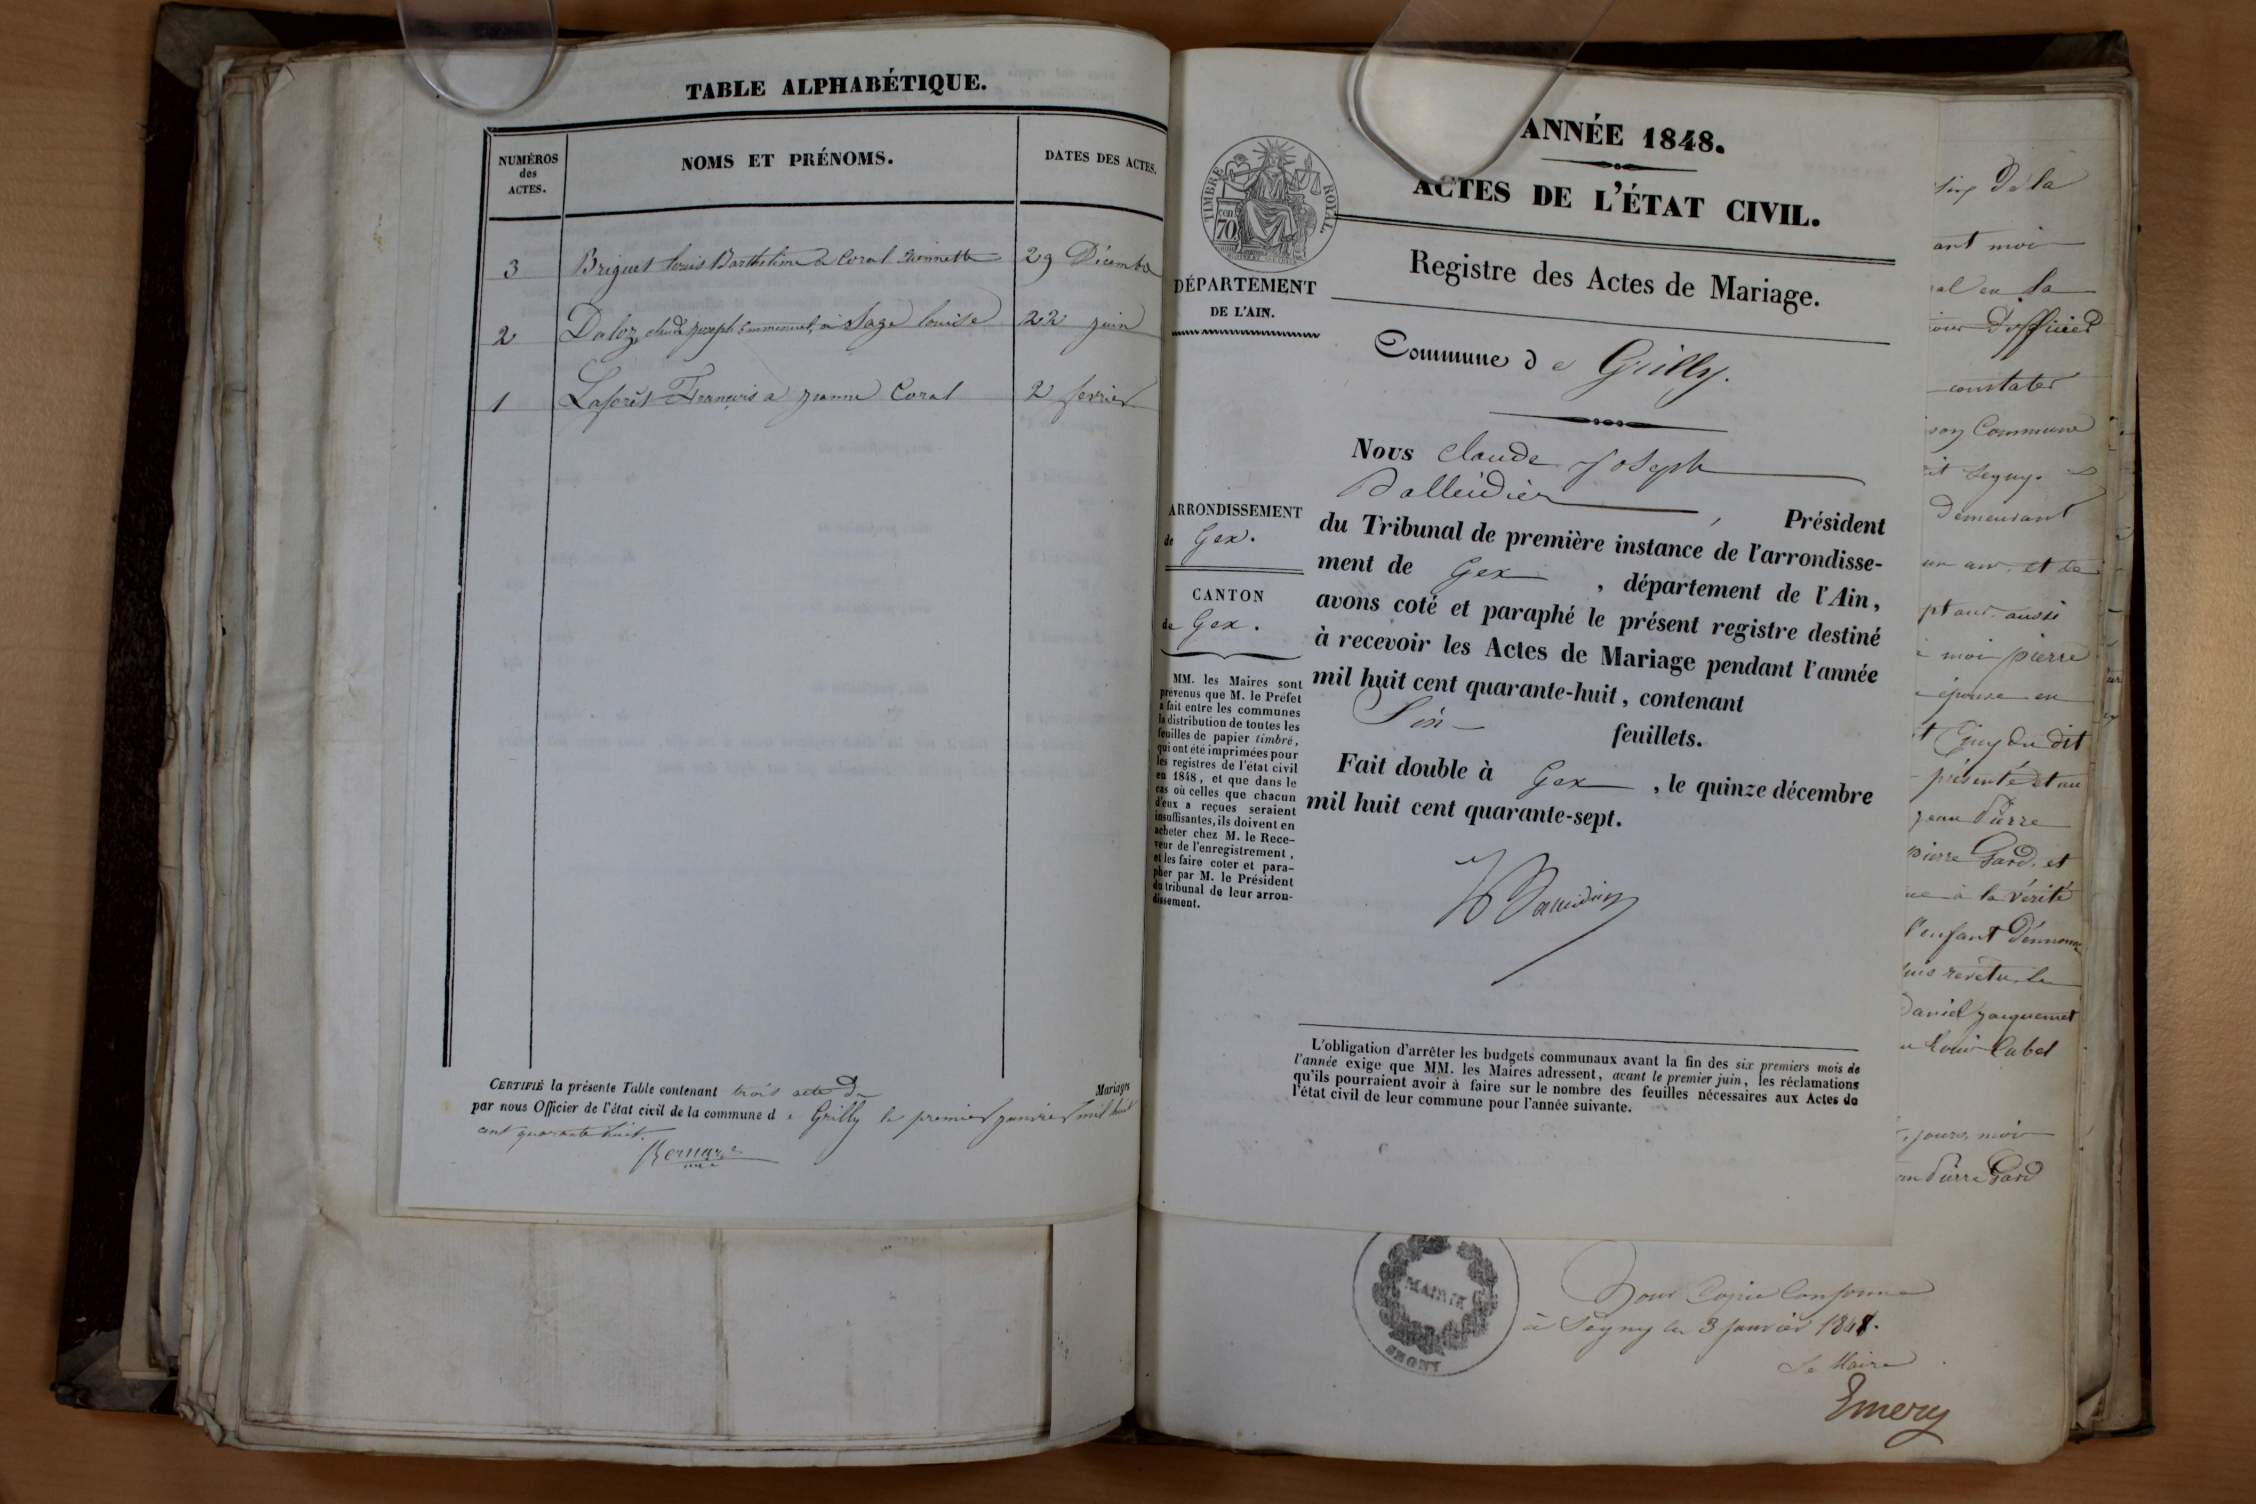 TABLE ALPHABÉTIQUE.
NUMÉROS
des
ACTES.
NOMS ET PRÉNOMS.
DATES DES ACTES.
3 Briguet louis Barthelime & Coral 29 Décembre
2 Daloz claude joseph Emmanuel, à Sage louise 22 juin
1 Laforêt François a jeanne Coral 2 fevrier
CERTIFIÉ la présente Table contenant trois acte de Mariages
par nous Officier de l'état civil de la commune d e Grilly le premier janvier mil huit
cent quarante huit.
Bernard
ANNÉE 1848.
ACTES DE L'ÉTAT CIVIL.
TIMBRE ROYAL.
70
DÉPARTEMENT
DE L'AIN.
Registre des Actes de Mariage.
Commune d e Grilly.
ARRONDISSEMENT
de Gex.
CANTON
de Gex.
MM. les Maires sont
prévenus que M. le Préfet
a fait entre les communes
la distribution de toutes les
feuilles de papier timbré,
qui ont été imprimées pour
les registres de l'état civil
en 1848, et que dans le
cas où celles que chacun
d'eux a reçues seraient
insuffisantes, ils doivent en
acheter chez M. le Rece-
veur de l'enregistrement,
et les faire coter et para-
pher par M. le Président
du tribunal de leur arron-
dissement.
Nous Claude Joseph
Balleidier, Président
du Tribunal de première instance de l'arrondisse-
ment de Gex, département de l'Ain,
avons coté et paraphé le présent registre destiné
à recevoir les Actes de Mariage pendant l'année
mil huit cent quarante-huit, contenant
feuillets.
Fait double à Gex, le quinze décembre
mil huit cent quarante-sept.
L'obligation d'arrêter les budgets communaux avant la fin des six premiers mois de
l'année exige que MM. les Maires adressent, avant le premier juin, les réclamations
qu'ils pourraient avoir à faire sur le nombre des feuilles nécessaires aux Actes de
l'état civil de leur commune pour l'année suivante.
de la
ant moi
al en la
d'officier
constater
son Commune
it Segny.
demeurant
un an, et de
aussi
moi pierre
épouse en
du dit
présenté et au
jean Pierre
pierre Gard, et
à la vérité
l'enfant dénommé
revetu, le
Daniel jacquemet
Louis Cabel
jours, moi
Pierre Gard
MAIRIE
SEGNY
Pour Copie Conforme
à Segny le 3 janvier 1848.
Le Maire
Emery